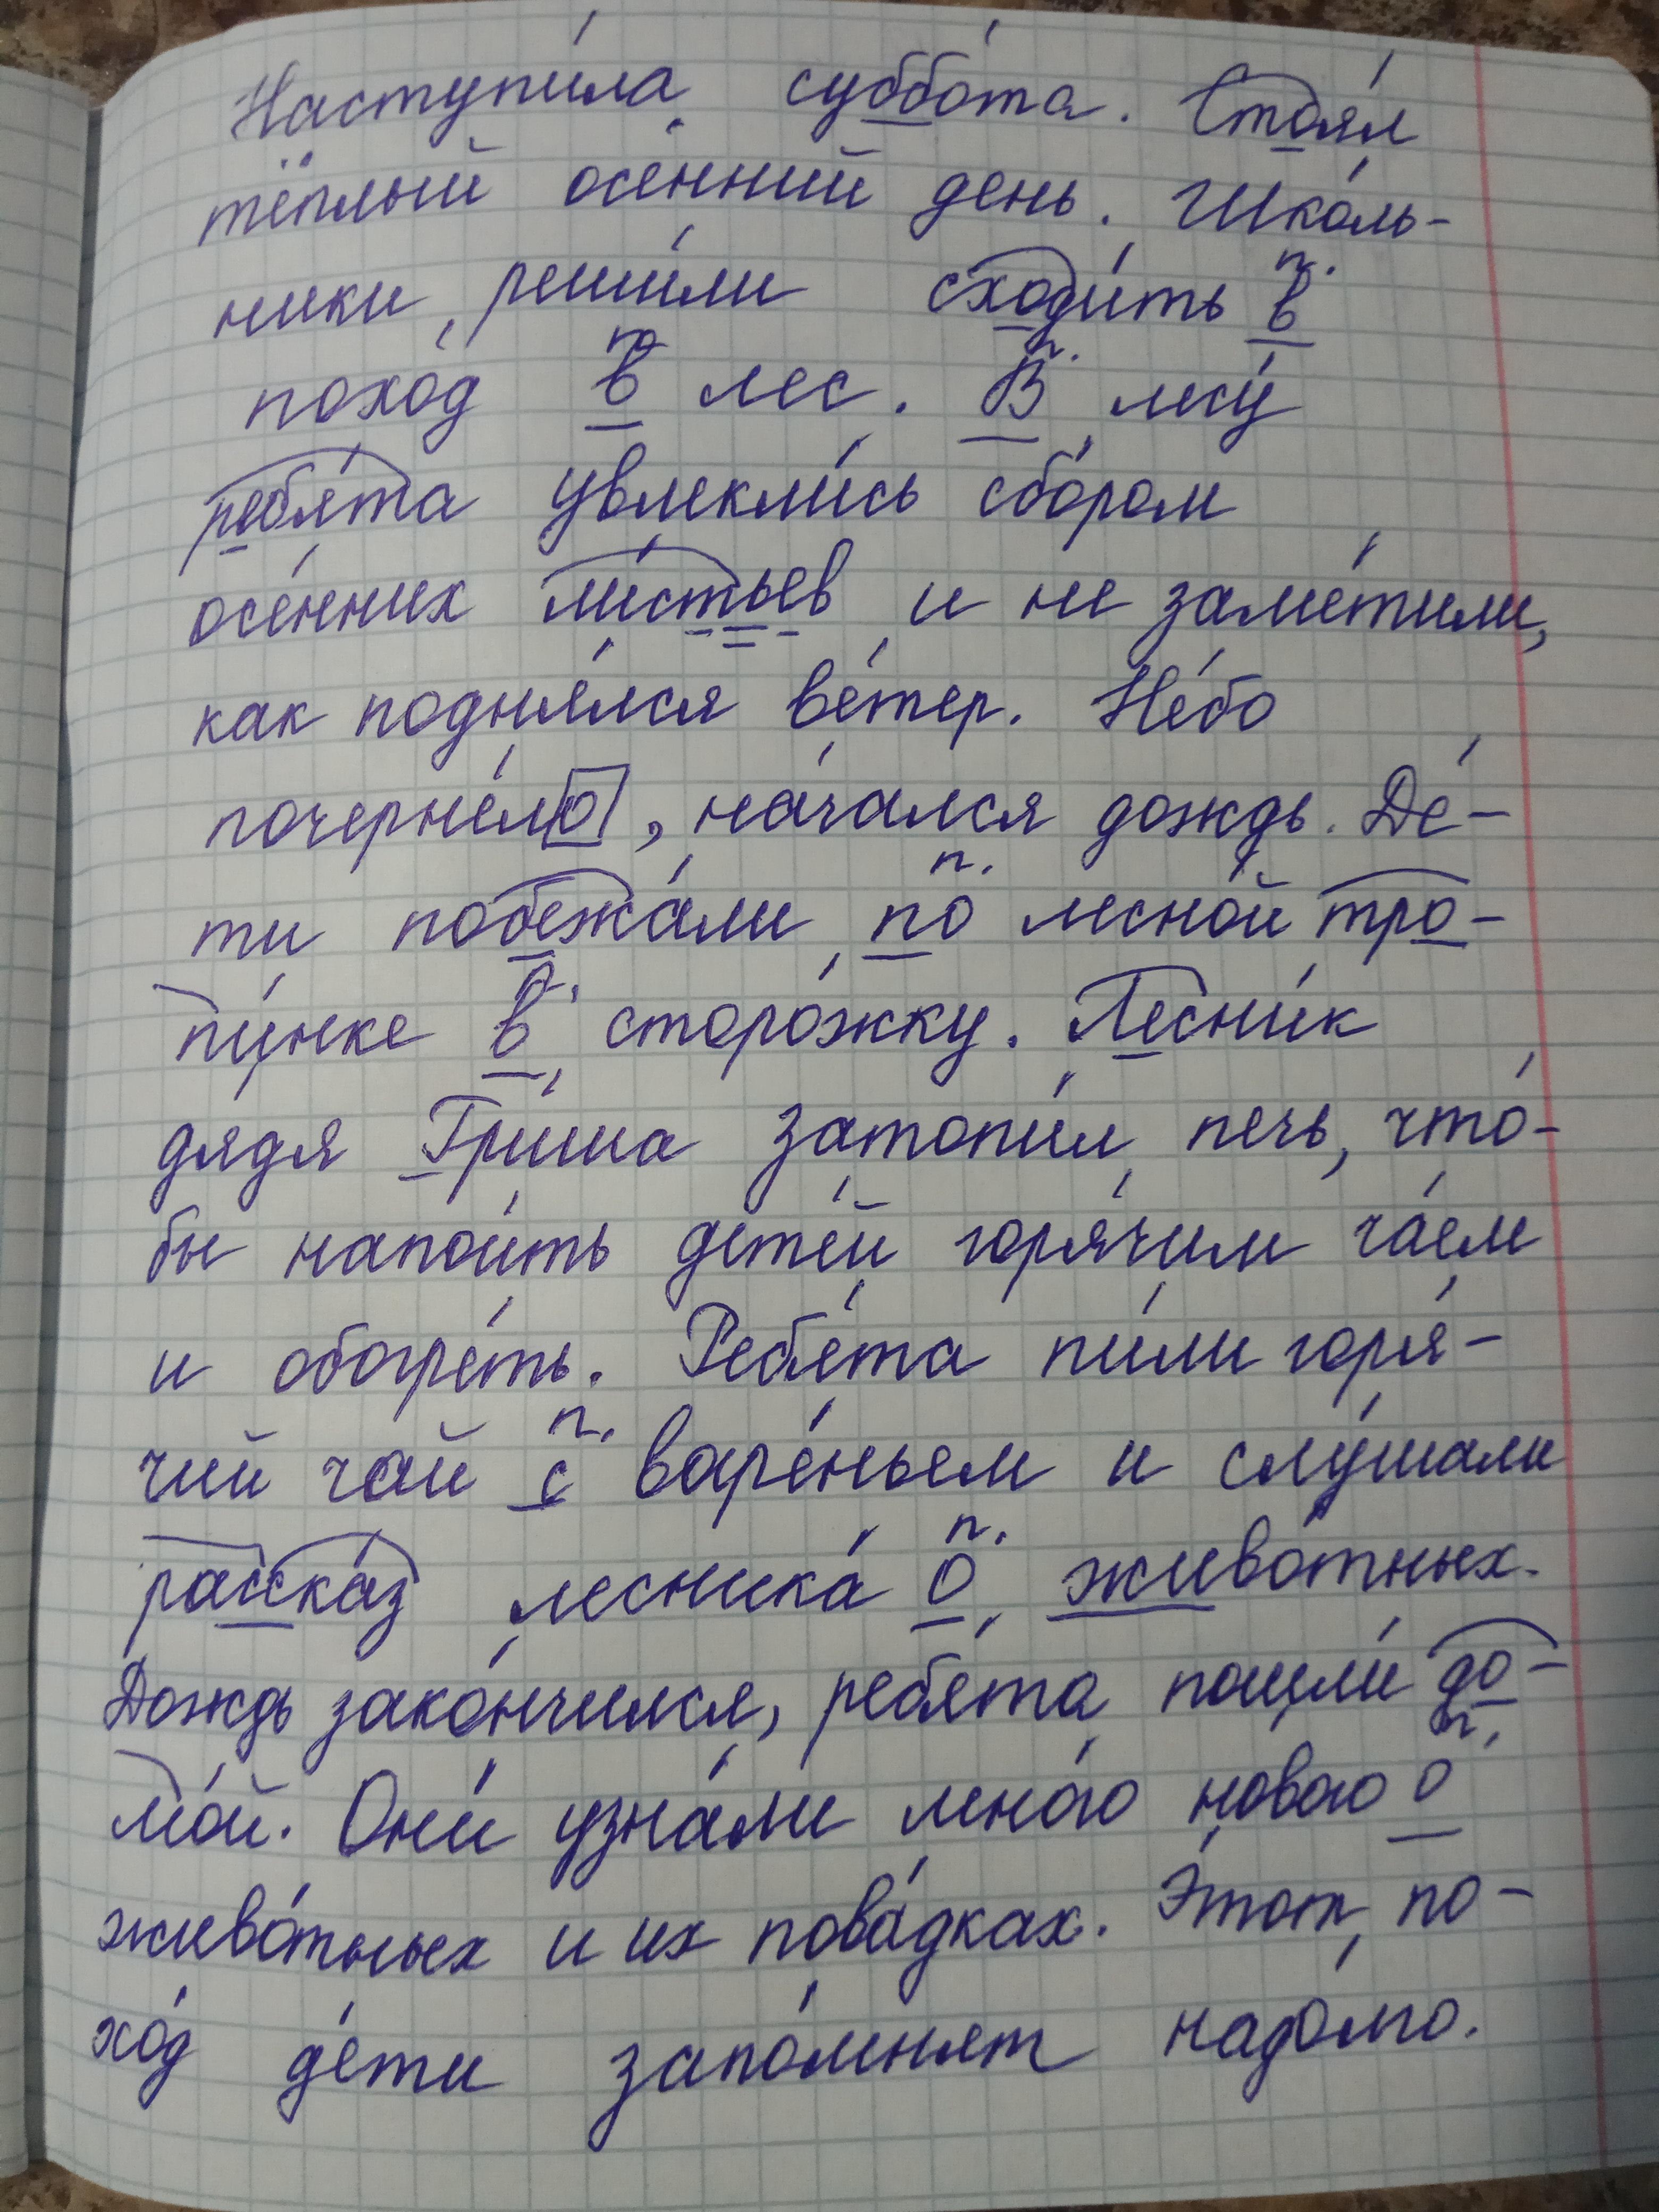 Наступила суббота. Стоял
тёплый осенний день. Школь-
ники решили сходить в
поход в лес. В лесу
ребята увлеклись сбором
осенних листьев и не заметили,
как поднялся ветер. Небо
почернело, начался дождь. Де-
ти побежали по лесной тро-
пинке в сторожку. Лесник
дядя Гриша затопил печь, что-
бы напоить детей горячим чаем
и обогреть. Ребята пили горя-
чий чай с вареньем и слушали
рассказ лесника о животных.
Дождь закончился, ребята пошли до-
мой. Они узнали много нового о
животных и их повадках. Этот по-
ход дети запомнят надолго.